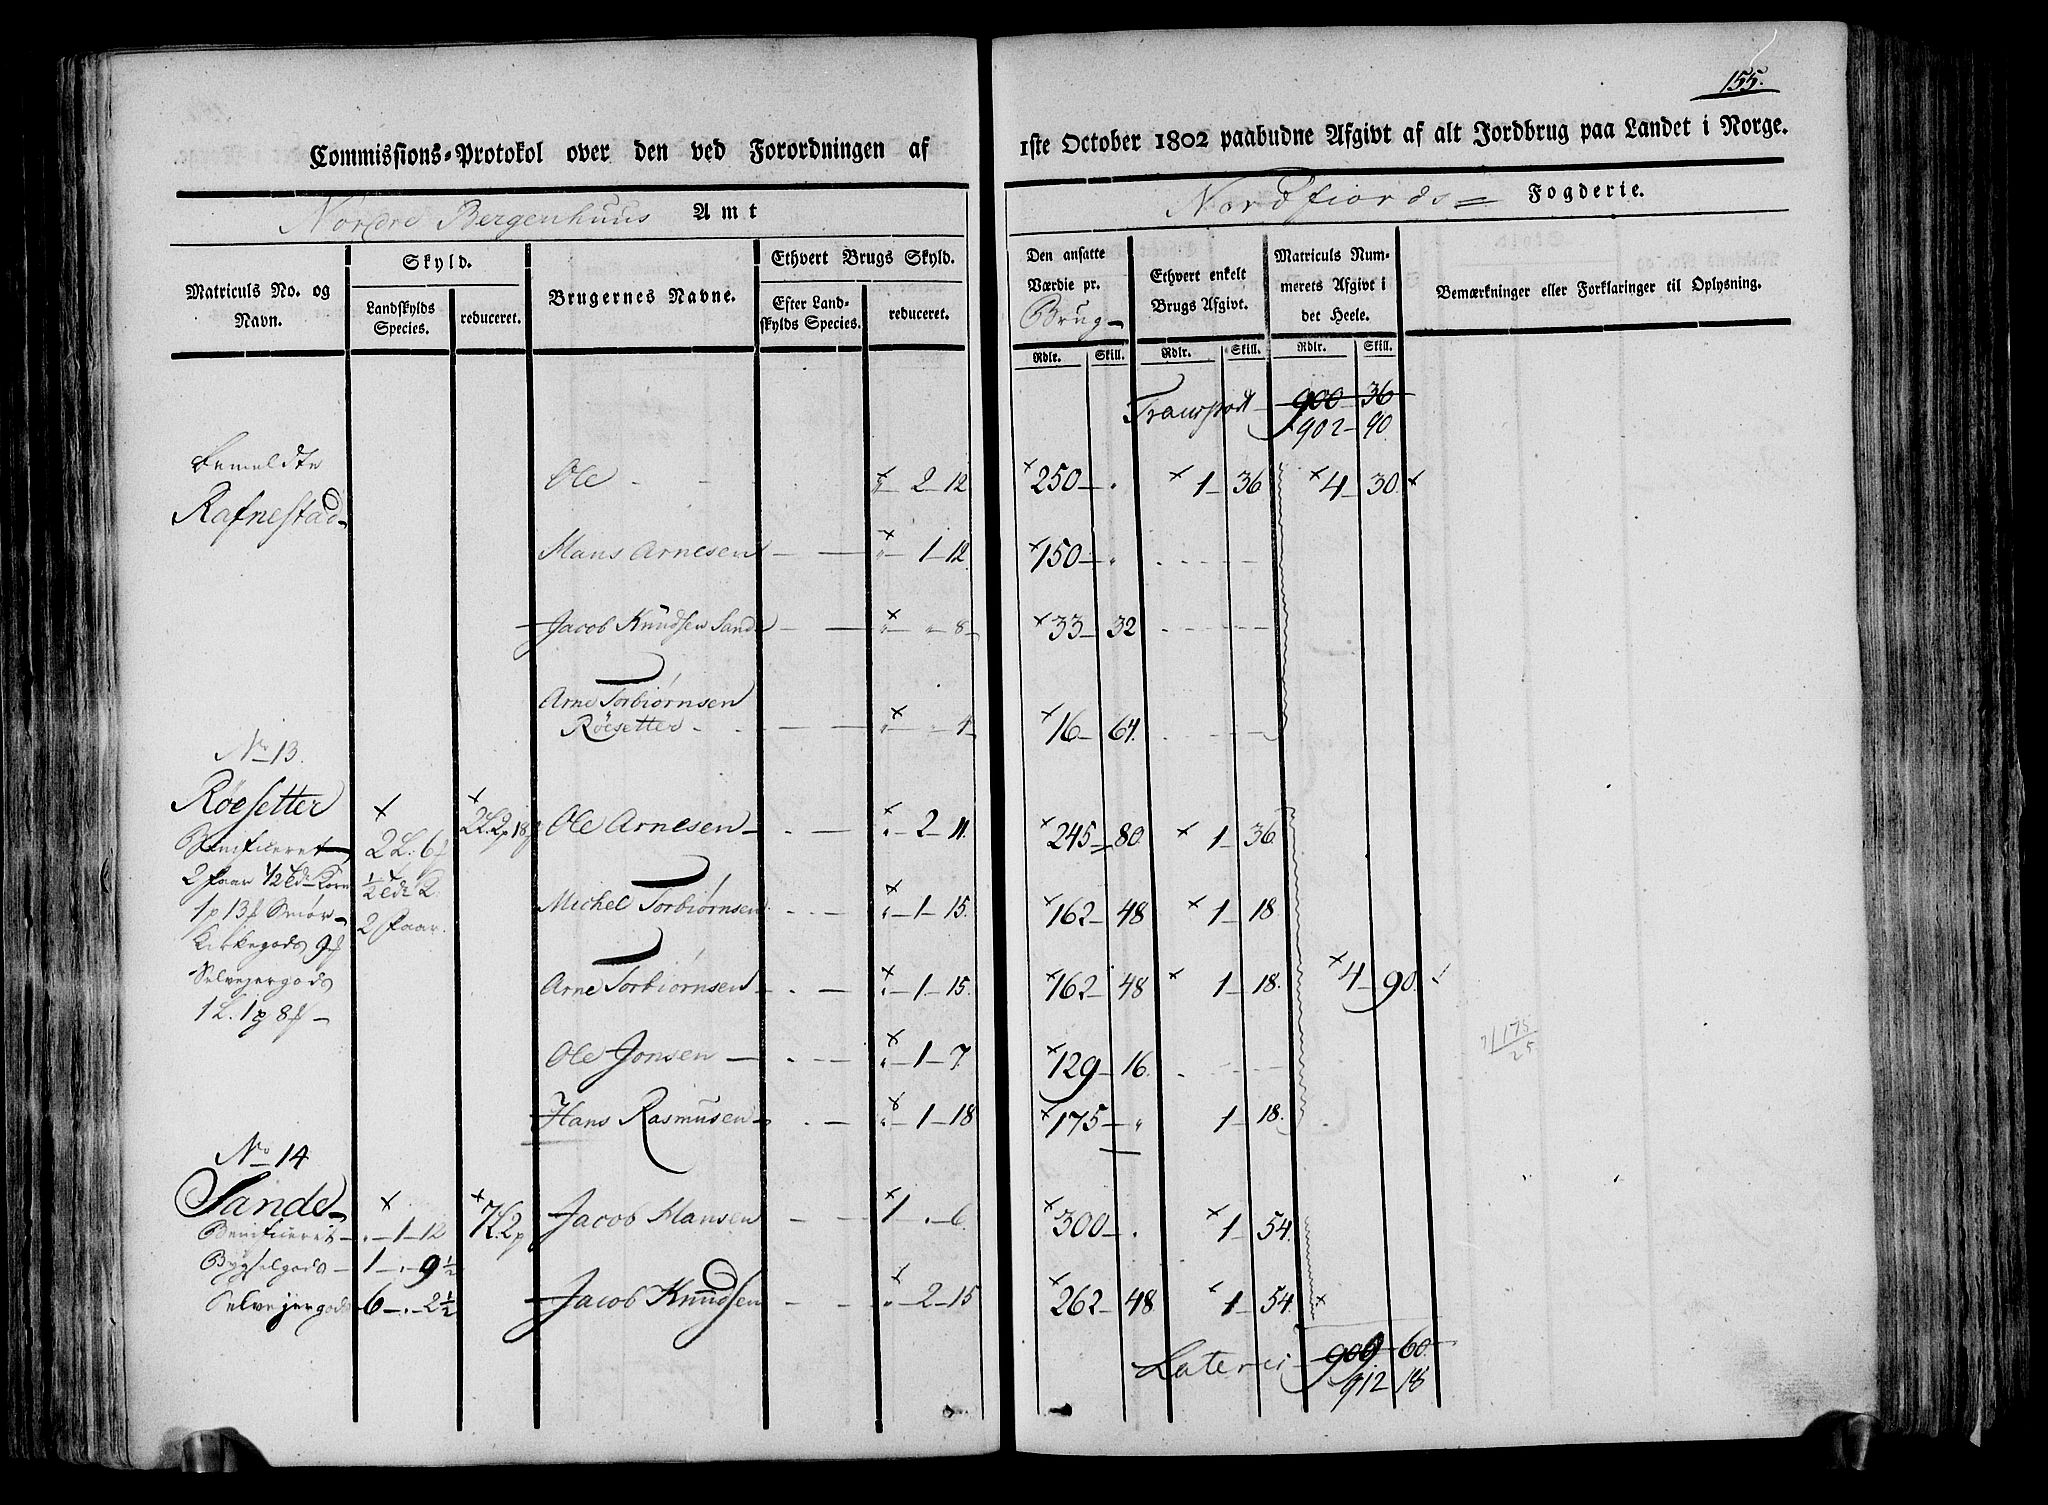 155.
Commissions-Protokol over den ved Forordningen af 1ste October 1802 paabudne Afgivt af alt Jordbrug paa Landet i Norge.
Nordre Bergenhuus Amt
Nordfiords Fogderie.
Matriculs No. og Navn.
Skyld.
Landskylds Species.
reduceret.
Brugernes Navne.
Ethvert Brugs Skyld.
Efter Landskylds Species.
reduceret.
Den ansatte Værdie pr. Brug
Rdlr. Skill.
Ethvert enkelt Brugs Afgivt.
Rdlr. Skill.
Matriculs Nummerets Afgivt i det Heele.
Rdlr. Skill.
Bemærkninger eller Forklaringer til Oplysning.
Transport 900 36
902 90
bemeldte
Rafnestad
Ole - - 2-12 250 - 1-36 4-30
Hans Arnesen - - 1-12 150 -
Jacob Knudsen Sande - - 8 33-32
Arne Torbiørnsen
Röesetter - - 4 16-64
No 13.
Röesetter
Benificeret
2 faar 1/2 Td. Korn
1 p 13 f Smør
Kirkegods 9 f
Selvejergods
1 L. 1 p 8 f
2 L: 6 f
1/2 Td. K.
2 faar.
2 L. 2 p 18 f
Ole Arnesen - - 2-11. 245-80 1-36
Michel Torbiørnsen - - 1-15. 162-48 1-18.
Arne Torbiørnsen - - 1-15. 162-48 1-18. 4-90.
Ole Jonsen - - 1-7 129-16.
Hans Rasmusen - - 1-18 175 - 1-18.
7/175/25
No 14
Sande
Benificeret - . - 1-12
Bygselgods - 1 - . - 9 1/2
Selvejergods 6 - . - 2 1/2
7 L. 2 p
Jacob Hansen - - 1 . 6. 300 - . 1-54.
Jacob Knudsen - - 2-15 262-48 1-54.
Lateris 909 60
912 18